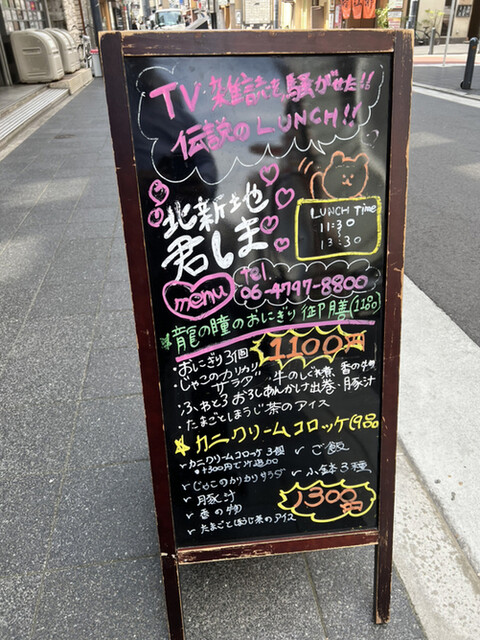 TV・雑誌を騒がせた!!
伝説のLUNCH!!
北新地
君しま
LUNCH Time
11:30
~
13:30
menu
Tel.
06-4797-8800
★龍の瞳のおにぎり御膳(11品)
1100円
・おにぎり3個
・じゃこのカリカリサラダ ・牛のしぐれ煮 ・香の物
・ふわとろおろしあんかけ出巻 ・豚汁
・たまごとほうじ茶のアイス
★カニクリームコロッケ(9品)
✓カニクリームコロッケ3個 ✓ご飯
*+300円で1ヶ追加
✓じゃこのカリカリサラダ ✓小鉢3種
✓豚汁
✓香の物
✓たまごとほうじ茶のアイス
1300円